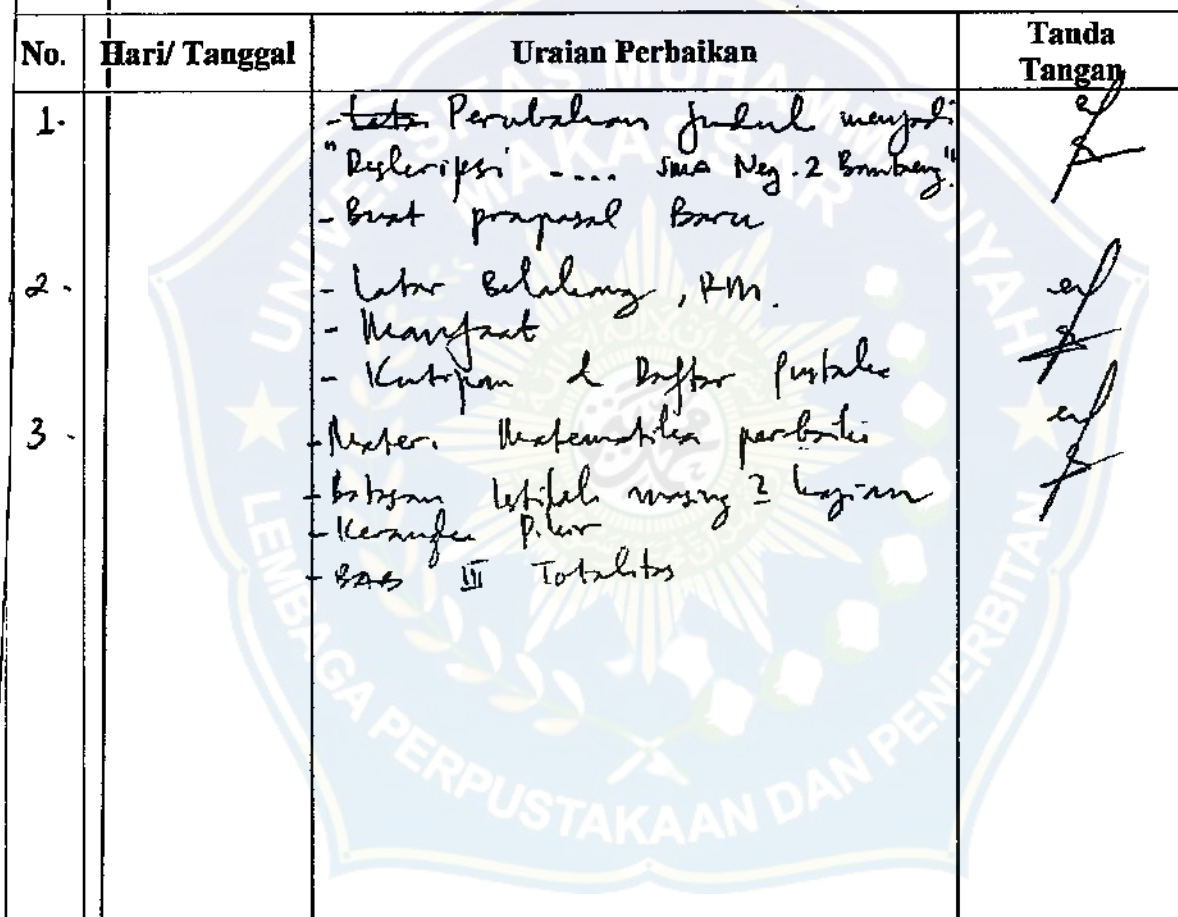 No. Hari/ Tanggal Uraian Perbaikan Tanda Tangan
1. - Perubahan Judul menjadi
"Deskripsi .... SMA Neg. 2 Bantaeng"
- Buat proposal Baru
2. - Latar Belakang, RM.
- Manfaat
- Kutipan & Daftar Pustaka
3. - Materi Matematika perbaiki
- Batasan Istilah masing 2 kajian
- Kerangka Pikir
- BAB III Totalitas
UNIVERSITAS MUHAMMADIYAH
MAKASSAR
LEMBAGA PERPUSTAKAAN DAN PENERBITAN